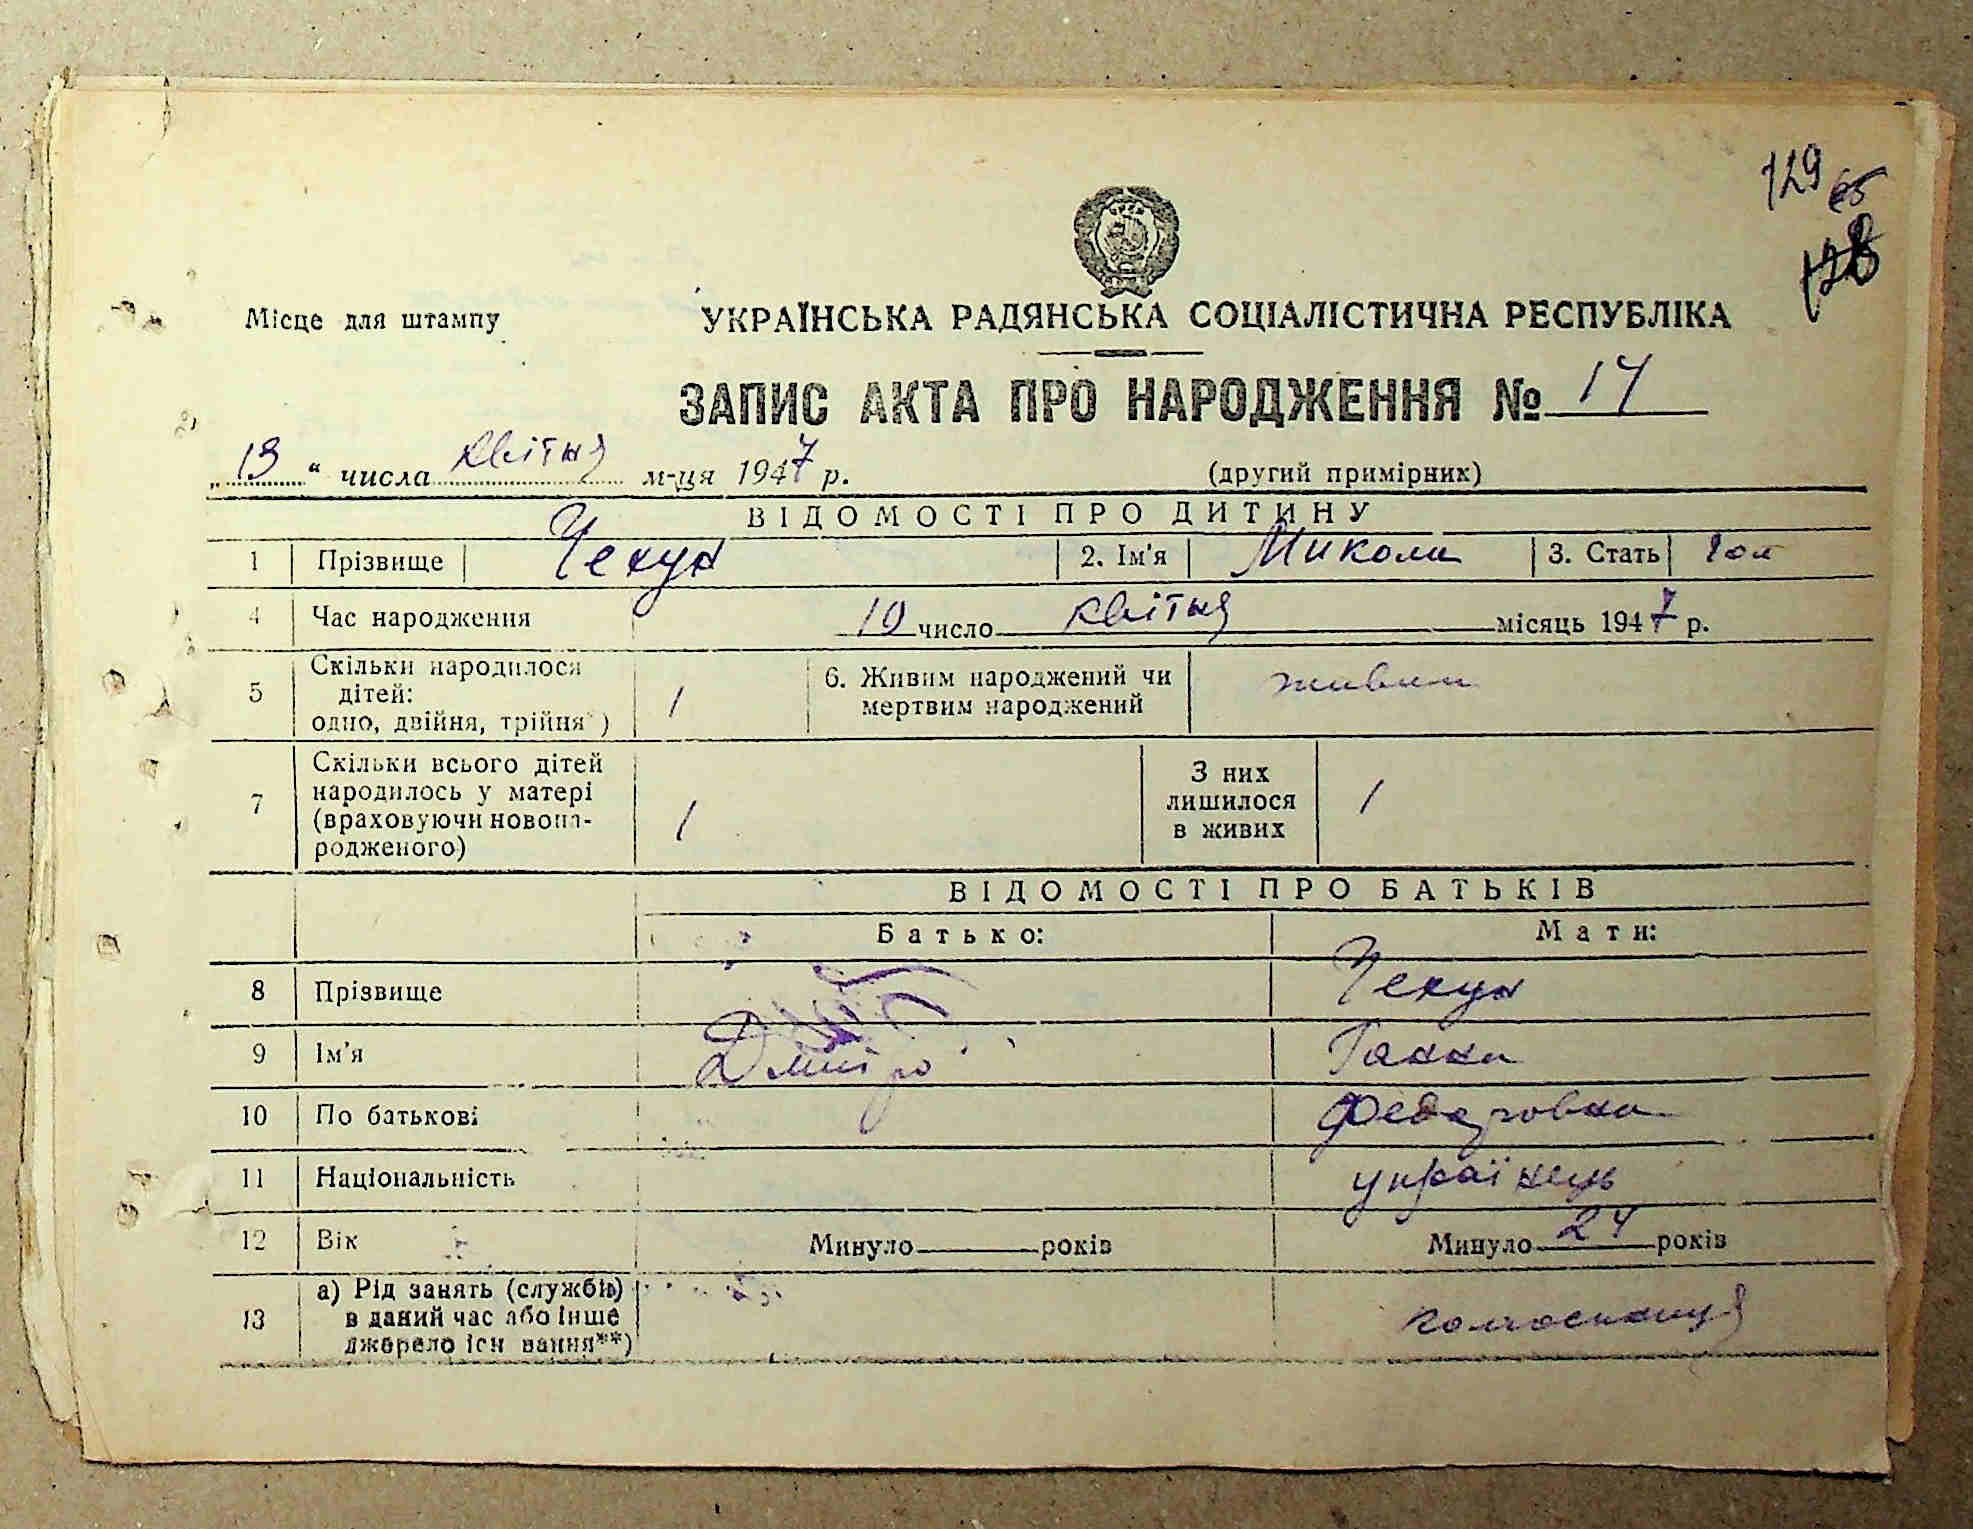 129
65
128
Місце для штампу
УКРАЇНСЬКА РАДЯНСЬКА СОЦІАЛІСТИЧНА РЕСПУБЛІКА
ЗАПИС АКТА ПРО НАРОДЖЕННЯ № 14
„13“ числа квітня м-ця 1947 р. (другий примірник)
ВІДОМОСТІ ПРО ДИТИНУ
1 Прізвище Чекун 2. Ім'я Микола 3. Стать чол
4 Час народження 10 число квітня місяць 1947 р.
5 Скільки народилося дітей: одно, двійня, трійня*) 1 6. Живим народжений чи мертвим народжений живим
7 Скільки всього дітей народилось у матері (враховуючи новона-родженого) 1 З них лишилося в живих 1
ВІДОМОСТІ ПРО БАТЬКІВ
Батько: Мати:
8 Прізвище Чекун
9 Ім'я Дмитро Ганна
10 По батькові Федоровна
11 Національність українець
12 Вік Минуло років Минуло 24 років
13 а) Рід занять (служби) в даний час або інше джерело існування**) колгоспниця